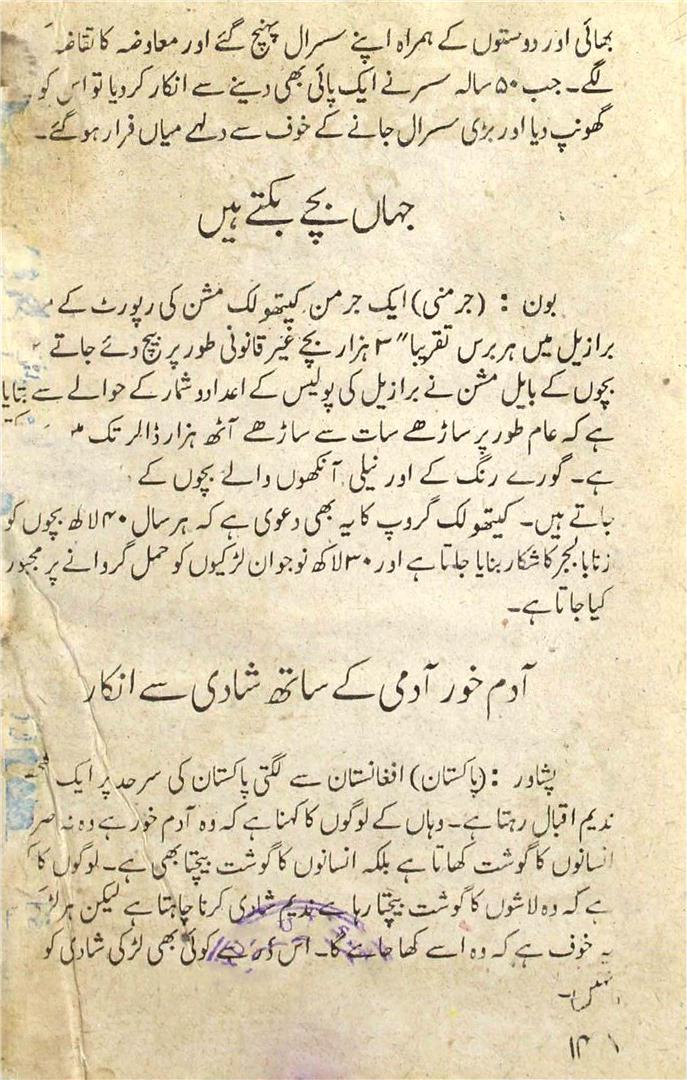 بھائی اور دوستوں کے ہمراہ اپنے سسرال پہنچ گئے اور معاوضہ کا تقاضہ
لگے۔ جب ۵۰ سالہ سسر نے ایک پائی بھی دینے سے انکار کر دیا تو اس کو
گھونپ دیا اور بڑی سسرال جانے کے خوف سے دلہے میاں فرار ہو گئے۔
جہاں بچے بکتے ہیں
بون : (جرمنی) ایک جرمن کیتھو لک مشن کی رپورٹ کے
برازیل میں ہر برس تقریبا" ۳ ہزار بچے غیر قانونی طور پر بیچ دئے جاتے
بچوں کے بایل مشن نے برازیل کی پولیس کے اعداد و شمار کے حوالے سے بتایا
ہے کہ عام طور پر ساڑھے سات سے ساڑھے آٹھ ہزار ڈالر تک
ہے۔ گورے رنگ کے اور نیلی آنکھوں والے بچوں کے
جاتے ہیں۔ کیتھو لک گروپ کا یہ بھی دعوی ہے کہ ہر سال ۴۰ لاکھ بچوں کو
زنا بالجبر کا شکار بنایا جاتا ہے اور ۳۰ لاکھ نوجوان لڑکیوں کو حمل گروانے پر مجبور
کیا جاتا ہے۔
آدم خور آدمی کے ساتھ شادی سے انکار
پشاور : (پاکستان) افغانستان سے لگتی پاکستان کی سرحد پر ایک
ندیم اقبال رہتا ہے۔ وہاں کے لوگوں کا کہنا ہے کہ وہ آدم خور ہے وہ نہ صر
انسانوں کا گوشت کھاتا ہے بلکہ انسانوں کا گوشت بیچتا بھی ہے۔ لوگوں کا
ہے کہ وہ لاشوں کا گوشت بیچتا رہا ہے ندیم شادی کرنا چاہتا ہے لیکن ہر لڑ
یہ خوف ہے کہ وہ اسے کھا جائے گا۔ اس وجہ سے کوئی بھی لڑکی شادی کو
نہیں۔